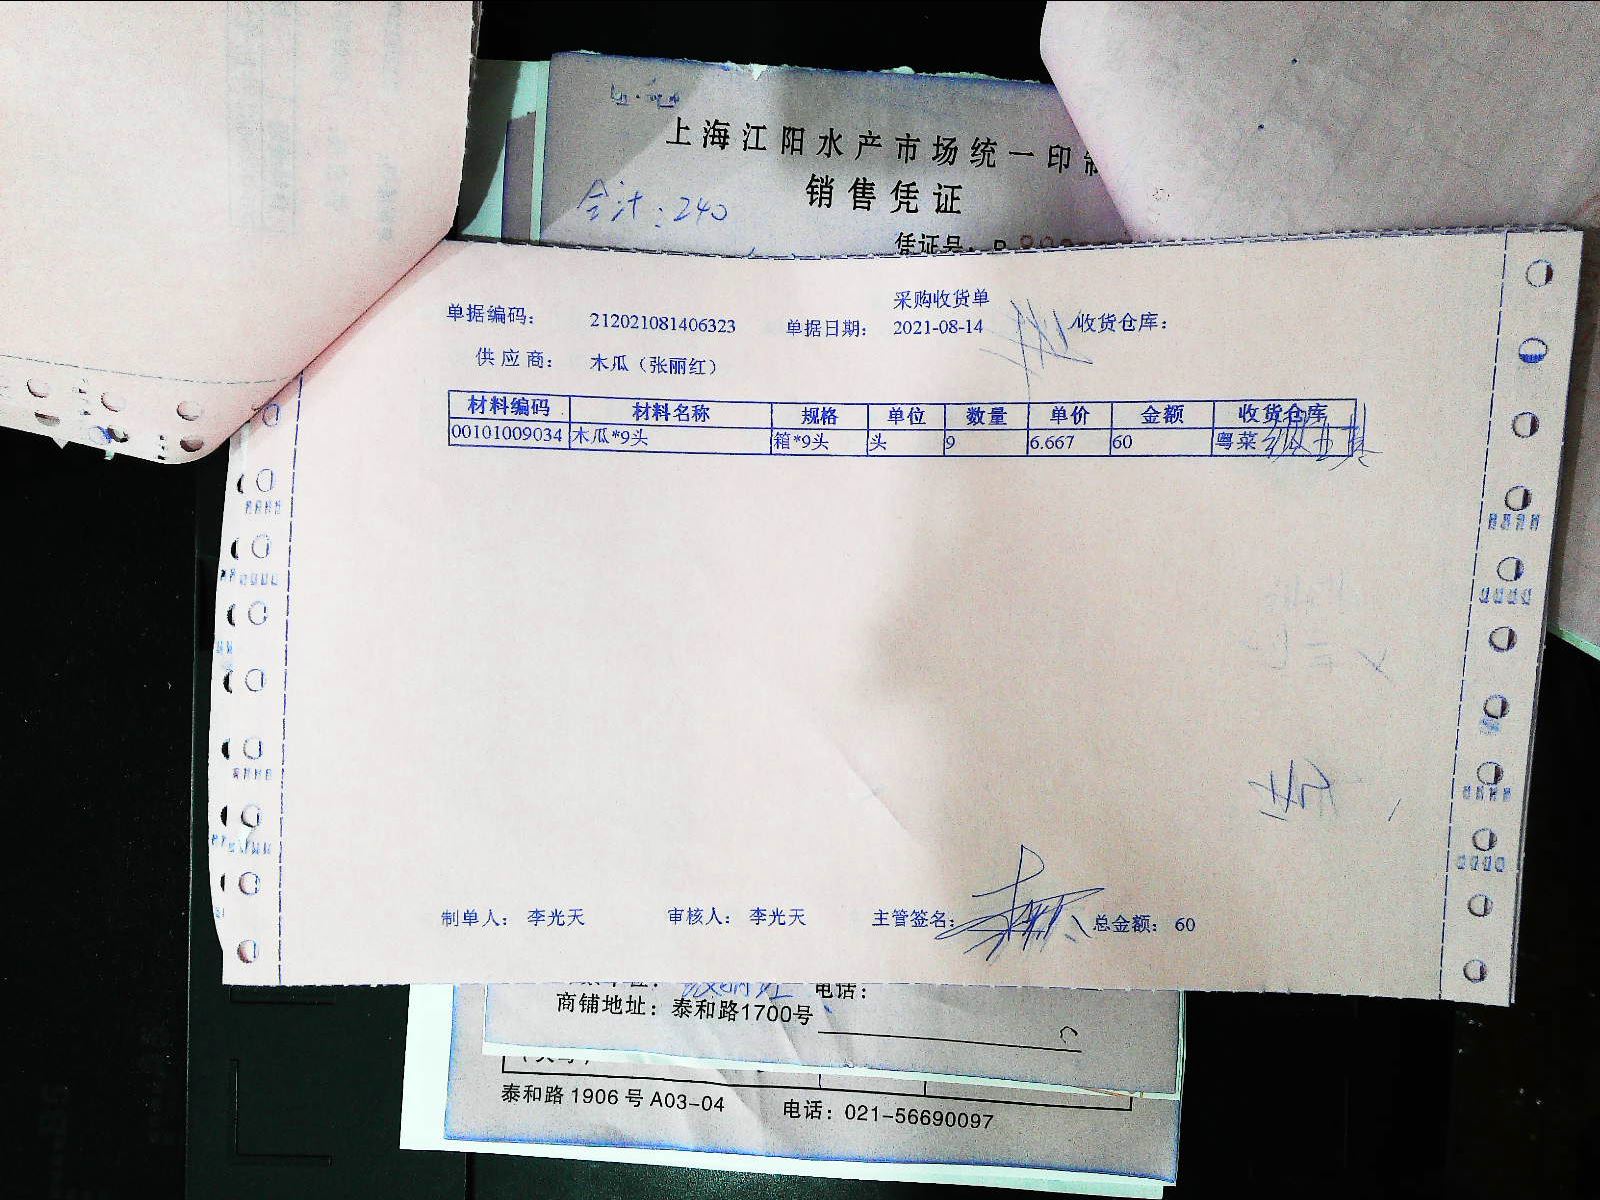 上海江阳水产市场统一印制
销售凭证
合计：240
凭证号：
采购收货单
单据编码： 212021081406323 单据日期： 2021-08-14 收货仓库：
供应商： 木瓜（张丽红）
材料编码 材料名称 规格 单位 数量 单价 金额 收货仓库
00101009034 木瓜*9头 箱*9头 头 9 6.667 60 粤菜
制单人： 李光天 审核人： 李光天 主管签名： 总金额： 60
电话：
商铺地址：泰和路1700号
泰和路1906号A03-04 电话：021-56690097